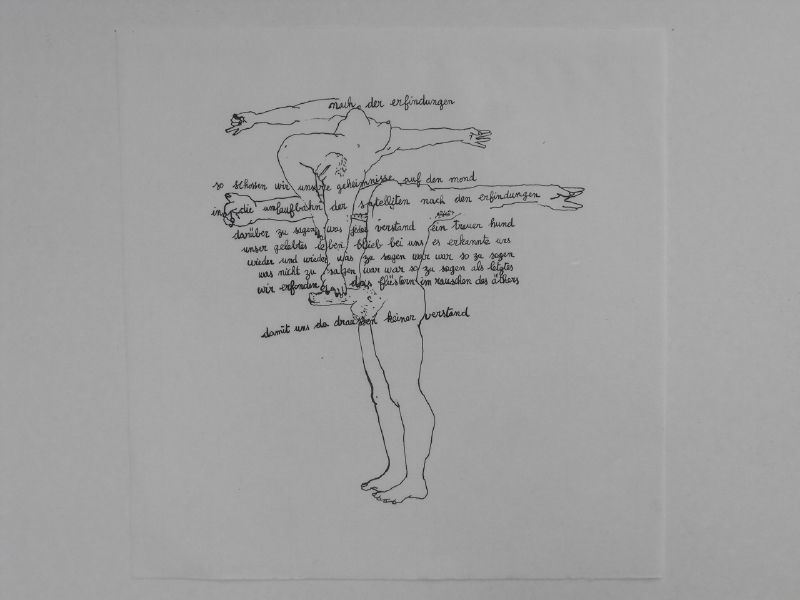 nach der erfindungen
so schossen wir unsere geheimnisse auf den mond
in die umlaufbahn der satelliten nach den erfindungen
darüber zu sagen was jedes verstand ein treuer hund
unser gelebtes leben blieb bei uns es erkannte uns
wieder und wieder was zu sagen war war so zu sagen
was nicht zu sagen war war so zu sagen als letztes
wir erfanden das flüstern im rauschen des äthers
damit uns da draussen keiner verstand